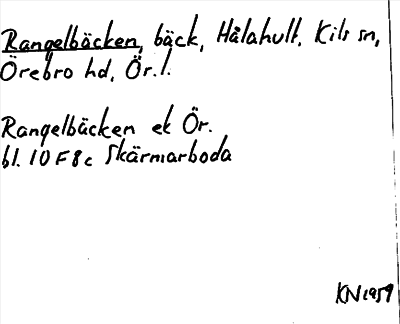 Rangelbäcken, bäck, Hålahult, Kils sn,
Örebro hd, Ör.l.
Rangelbäcken ek Ör.
bl. 10F8c Skärmarboda
KN 1959